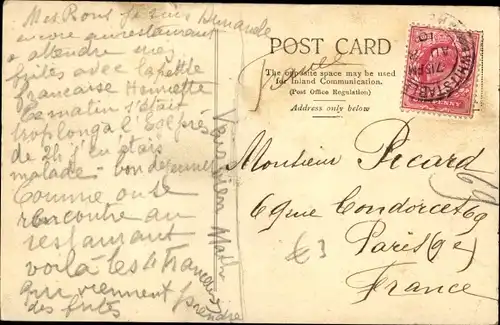 Mes Bons je suis Dimanche
encore au restaurant
a attendre mes
frites avec la petite
Francaise Henriette
Ce matin s'était
trop long a l'Eol près
de 2h j'en étais
malade - bon dejeuner
Comme on se
rencontre au
restaurant
voilà les 4 Francaises
qui viennent prendre
des frites
POST CARD
The opposite space may be used
for Inland Communication.
(Post Office Regulation)
Address only below
WHITSTABLE
7 15 PM
AU
PENNY
Monsieur Picard
69 rue Condorcet 69
Paris (9e)
France
£3